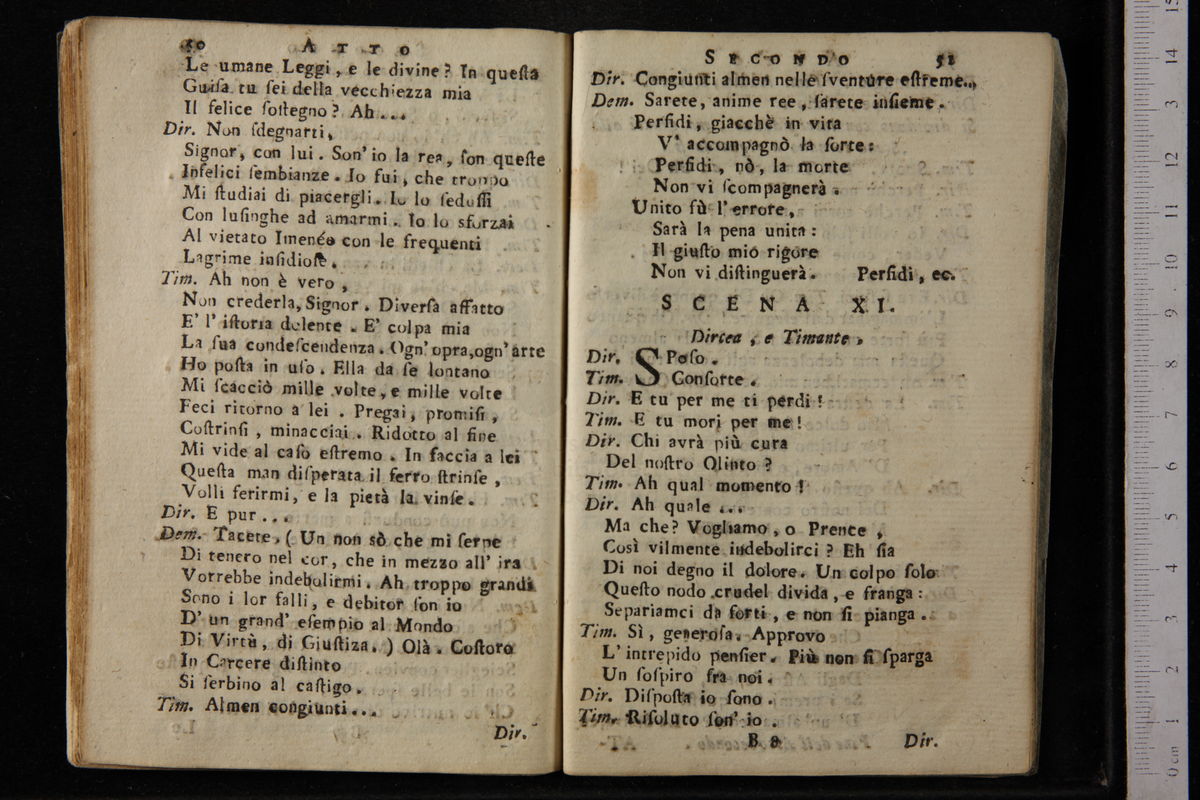 50 ATTO
Le umane Leggi, e le divine? In queſta
Guiſa tu ſei della vecchiezza mia
Il felice ſoſtegno? Ah...
Dir. Non ſdegnarti,
Signor, con lui. Son' io la rea, ſon queſte
Infelici ſembianze. Io fui, che troppo
Mi ſtudiai di piacergli. Io lo ſeduſſi
Con luſinghe ad amarmi. Io lo sforzai
Al vietato Imenéo con le frequenti
Lagrime inſidioſe.
Tim. Ah non è vero,
Non crederla, Signor. Diverſa affatto
E' l' iſtoria dolente. E' colpa mia
La ſua condeſcendenza. Ogn' opra, ogn' arte
Ho poſta in uſo. Ella da ſe lontano
Mi ſcacciò mille volte, e mille volte
Feci ritorno a lei. Pregai, promiſi,
Coſtrinſi, minacciai. Ridotto al fine
Mi vide al caſo eſtremo. In faccia a lei
Queſta man diſperata il ferro ſtrinſe,
Volli ferirmi, e la pietà la vinſe.
Dir. E pur...
Dem. Tacete. (Un non sò che mi ſerpe
Di tenero nel cor, che in mezzo all' ira
Vorrebbe indebolirmi. Ah troppo grandi
Sono i lor falli, e debitor ſon io
D' un grand' eſempio al Mondo
Di Virtù, di Giuſtiza.) Olà. Coſtoro
In Carcere diſtinto
Si ſerbino al caſtigo.
Tim. Almen congiunti...
Dir.
SECONDO 51
Dir. Congiunti almen nelle ſventure eſtreme...
Dem. Sarete, anime ree, ſarete inſieme.
Perfidi, giacchè in vita
V' accompagnò la ſorte:
Perfidi, nò, la morte
Non vi ſcompagnerà.
Unito fù l' errore,
Sarà la pena unita:
Il giuſto mio rigore
Non vi diſtinguerà. Perfidi, ec.
SCENA XI.
Dircea, e Timante.
Dir. SPoſo.
Tim. Conſorte.
Dir. E tu per me ti perdi!
Tim. E tu mori per me!
Dir. Chi avrà più cura
Del noſtro Olinto?
Tim. Ah qual momento!
Dir. Ah quale...
Ma che? Vogliamo, o Prence,
Così vilmente indebolirci? Eh ſia
Di noi degno il dolore. Un colpo ſolo
Queſto nodo crudel divida, e franga:
Separiamci da forti, e non ſi pianga.
Tim. Sì, generoſa. Approvo
L' intrepido penſier. Più non ſi ſparga
Un ſoſpiro fra noi.
Dir. Diſpoſta io ſono.
Tim. Riſoluto ſon' io.
Dir.